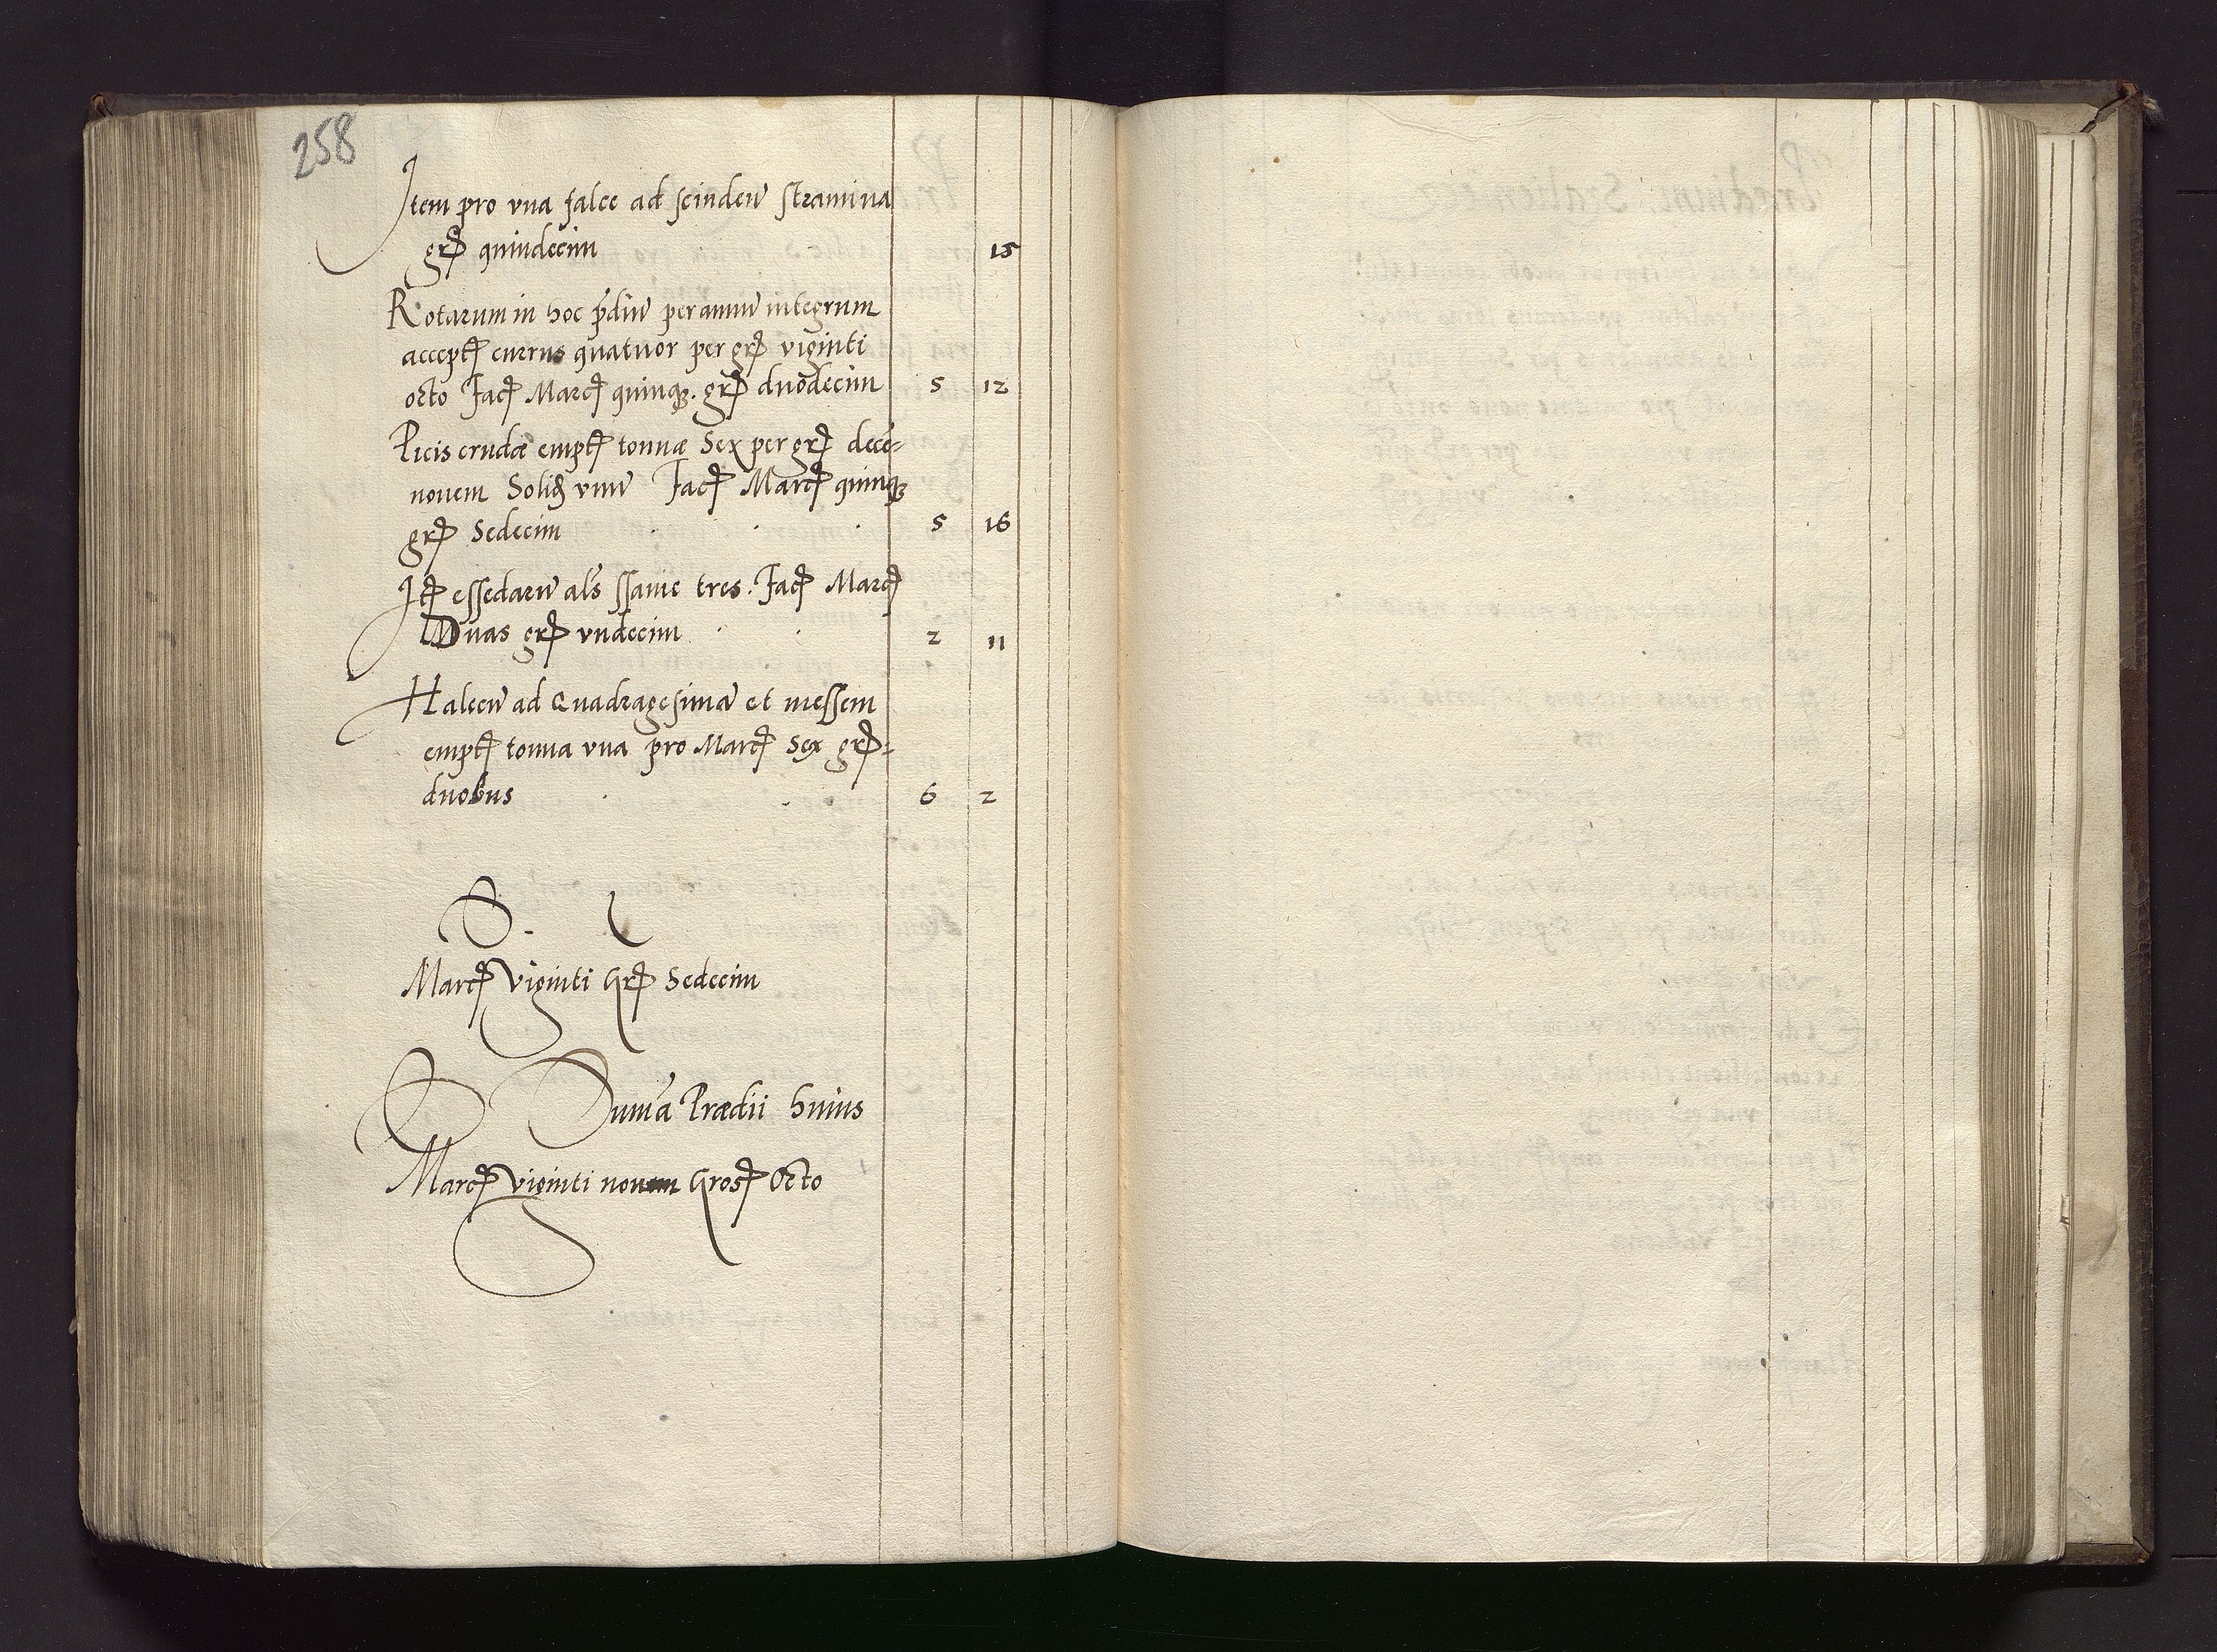 258
Item pro vna falce ad scinden̄ stramina
gr̄ quindecim 15
Rotarum in hoc p̄diū per annū integrum
accept̄ currus quatuor per gr̄ viginti
octo fac̄ Marc̄ quinq₃. gr̄ duodecim 5 12
Picis crudæ empt̄ tonnæ Sex per gr̄ decē-
nouem Solid̄ vnū fac̄ Marc̄ quinq₃
gr̄ Sedecim 5 16
It̄ essedarū al̄s ssanie tres. fac̄ Marc̄
Duas gr̄ vndecim 2 11
Halecū ad Quadragesimā et messem
empt̄ tonna vna pro Marc̄ Sex gr̄-
duobus 6 2
S.
Marc̄ Viginti Gr̄ Sedecim
Sum̄a Prædii huius
Marc̄ Viginti nouem Gros̄ Octo